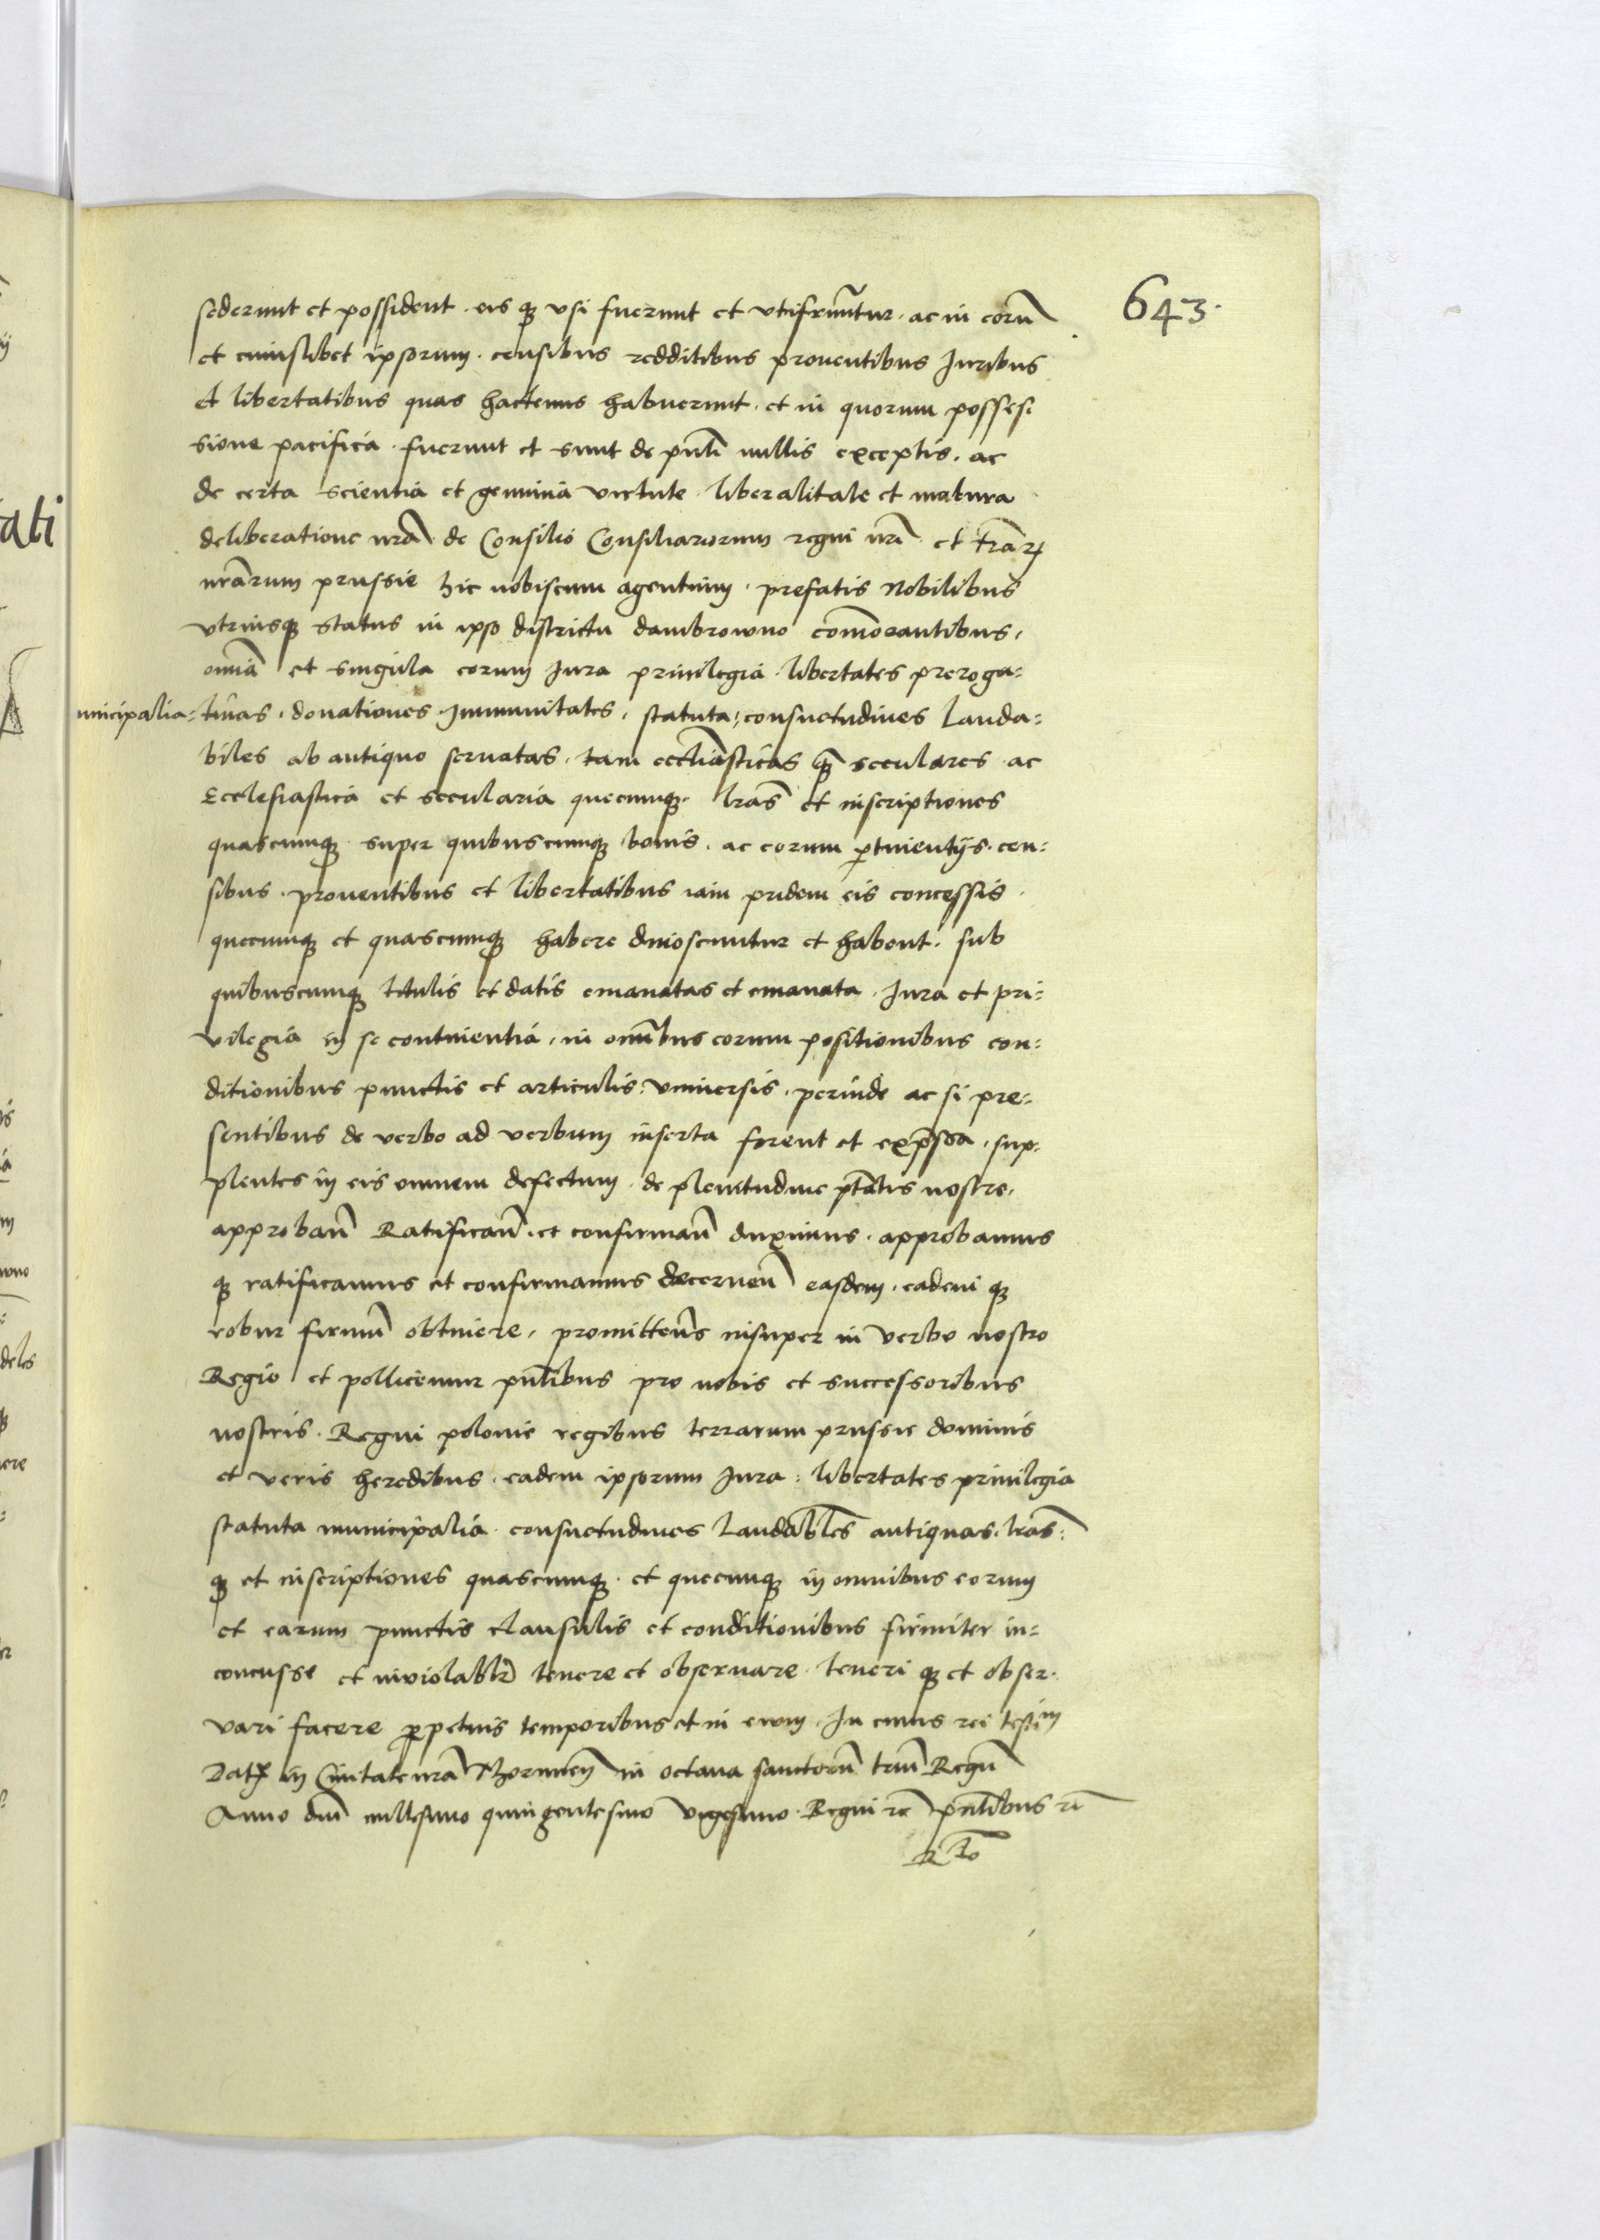 643.
sederunt et possident. eis q3 vsi fuerunt et vtifruũtur. ac in eorũ
et cuiuslibet ipsorum. censibus redditibus prouentibus Juribus
et libertatibus quas hactenus habuerunt. et in quorum posses
sione pacifica. fuerunt et sunt de pñti nullis exceptis. ac
de certa scientia et genuina virtute liberalitate et matura
deliberatione nrã. de Consilio Consiliariorum regni nrĩ et trãrꝝ
nrãrum prussie hic nobiscum agentium. prefatis Nobilibus
vtriusq3 status in ipso districtu dambrowno com̃orantibus.
om̃ia et singula eorum Jura priuilegia. libertates preroga:
unicipalia: tiuas. donationes Jmmunitates. statuta: consuetudines Lauda:
biles ab antiquo seruatas. tam eccl̃iasticas q̃ꝫ seculares. ac
Ecclesiastica et secularia quecumq3. lrãs et inscriptiones
quascumq3. super quibuscumq3 bonis. ac eorum ꝑtinentijs. cen:
sibus. prouentibus et libertatibus iam pridem eis concessis.
quecumq3 et quascumq3 habere dinoscuntur et habent. sub
quibuscumq3 titulis et datis emanatas et emanata. Jura et pri:
vilegia in se continentia. in om̃ibus eorum positionibus con:
ditionibus punctis et articulis. vniuersis. perinde ac si pre:
sentibus de verbo ad verbum inserta forent et exp̃ssa. sup:
plentes in eis omnem defectum. de plenitudine ptãtis nostre.
approban̄ Ratifican̄. et confirman̄ duximus. approbamus
q3 ratificamus et confirmamus decernen̄ easdem. eadem q3
robur firmũ obtinere. promitten̄s insuper in verbo nostro
Regio et pollicemur pñtibus pro nobis et successoribus
nostris. Regni polonie regibus terrarum prussie dominis
et veris heredibus. eadem ipsorum Jura: libertates priuilegia
statuta municipalia. consuetudines Laudabl̃es antiquas. lrãs:
q3 et inscriptiones quascumq3. et quecumq3 in omnibus eorum
et earum punctis clausulis et conditionibus firmiter in:
concusse et inviolabl̃r tenere et obseruare. teneri q3 et obser.
vari facere ꝑpetuis temporibus et in ewm. Jn cuius rei testim
Datꝭ in Ciuitate nrã Thorunen̄ in octaua sanctorũ triũ Regũ
Anno dñi millesimo quingentesimo vigesimo. Regni rc̃ pñtibus rc̃